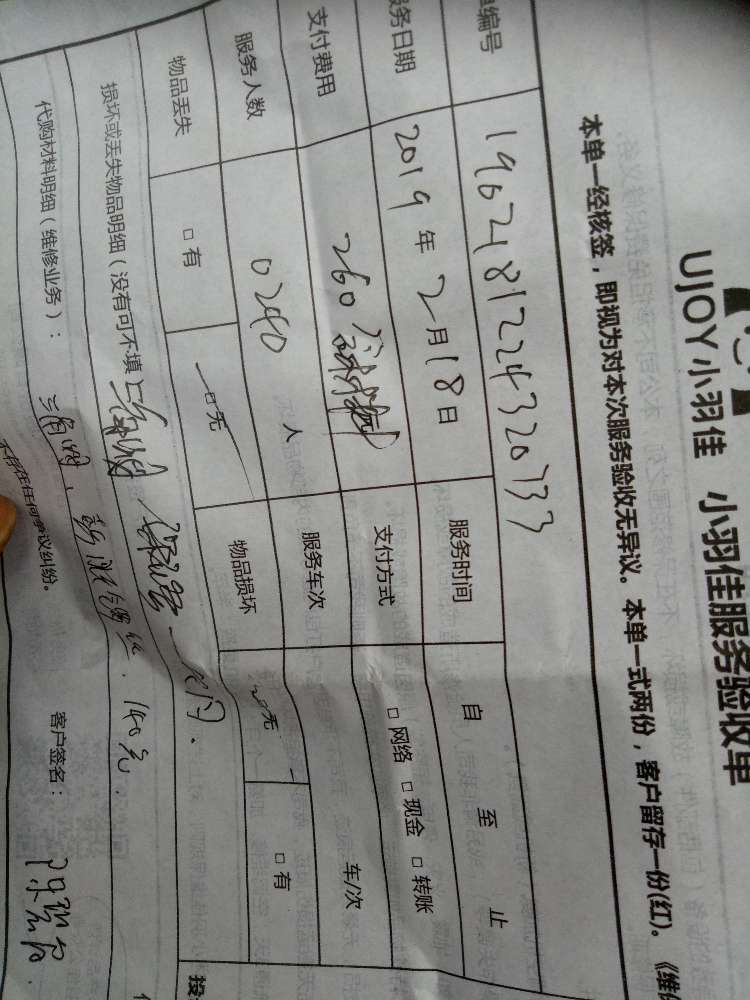 UJOY小羽佳 小羽佳服务验收单
本单一经核签，即视为对本次服务验收无异议。本单一式两份，客户留存一份(红)。《维
单编号 190218122432033
务日期 2019年2月18日 服务时间 自 至 止
支付费用 260 支付方式 □网络 □现金 □转账
服务人数 0240 人 服务车次 车/次
物品丢失 □有 □无 物品损坏 □无 □有
损坏或丢失物品明细（没有可不填
代购材料明细（维修业务）： 140元.
不存在任何争议纠纷。 客户签名：
投